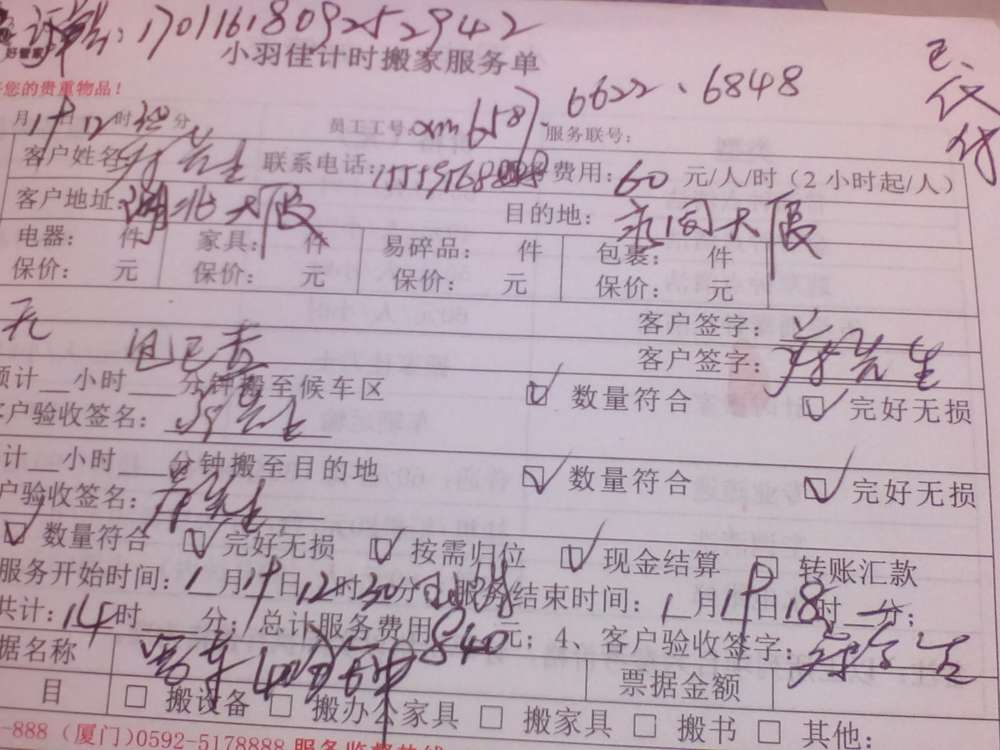 订单号:1701161809252942
好管家
小羽佳计时搬家服务单
已付
您的贵重物品!
6622、6848
月19日12时30分 员工工号:xm658 服务联号:
客户姓名 先生 联系电话: 费用:60元/人/时(2小时起/人)
客户地址:湖北大厦 目的地:永同大厦
电器: 件 家具: 件 易碎品: 件 包裹: 件
保价: 元 保价: 元 保价: 元 保价: 元
无 客户签字:
客户签字: 先生
预计__小时___分钟搬至候车区 ☑数量符合 ☑完好无损
客户验收签名: 先生
计__小时___分钟搬至目的地 ☑数量符合 ☑完好无损
户验收签名: 先生
☑数量符合 ☑完好无损 ☑按需归位 ☑现金结算 □转账汇款
服务开始时间:1月19日12时30分 服务结束时间:1月19日18时一分;
共计:14时 分;总计服务费用840元;4、客户验收签字:
据名称 票据金额
目 □搬设备 □搬办公家具 □搬家具 □搬书 □其他:
-888(厦门)0592-5178888 服务监督热线